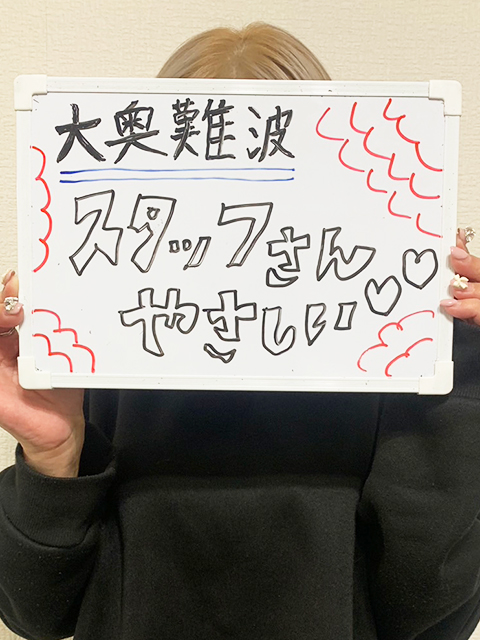 大奥難波
スタッフさん
やさしい♡♡